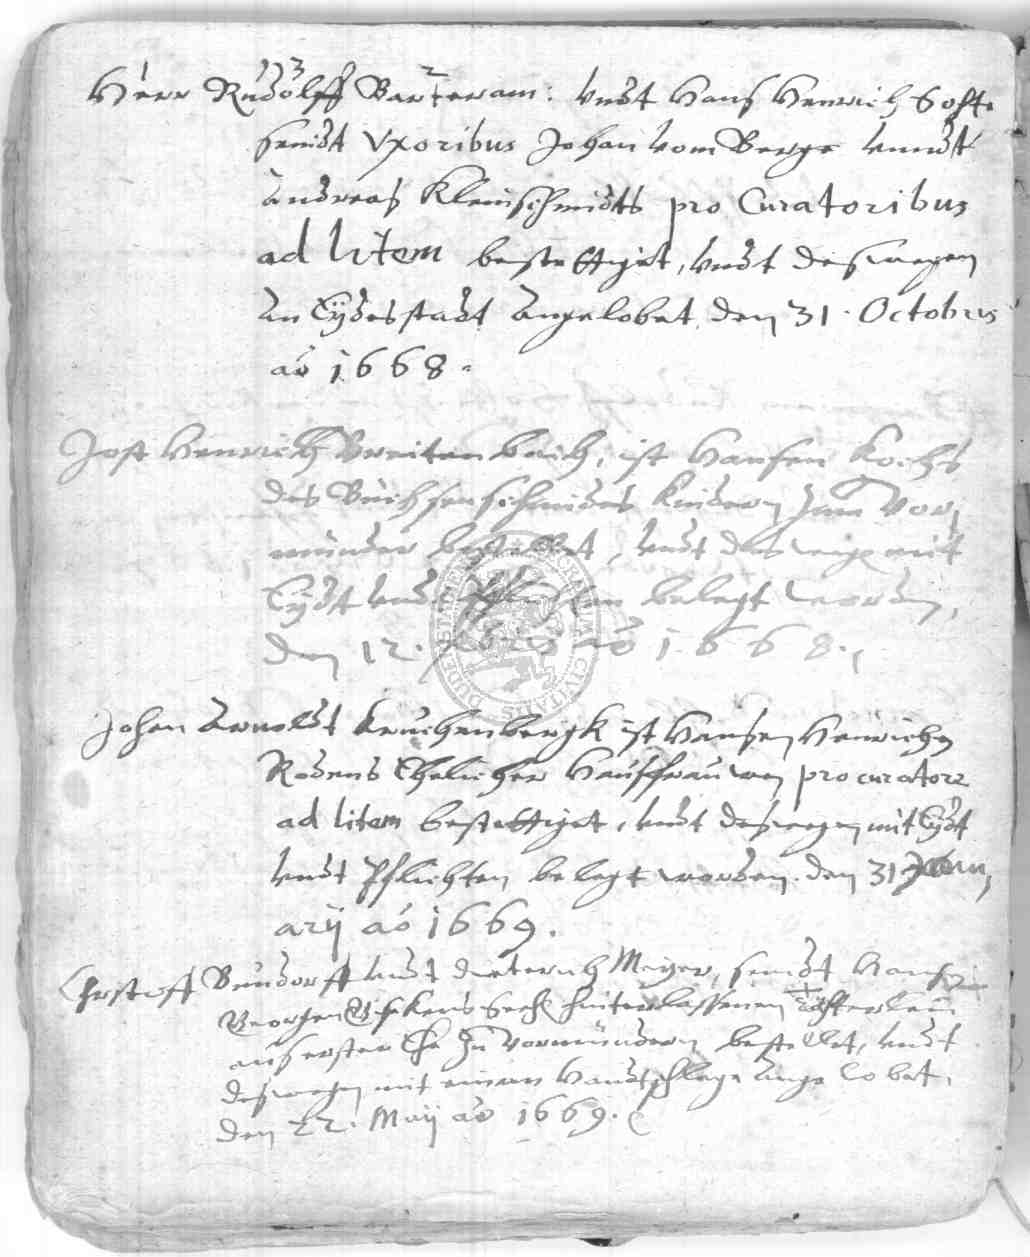 Herr Rudolff Barteram: undt Hans Henrich
seindt Uxoribus Johan vom Berge unndt
Andreas Kleinschmidts pro Curatoribus
ad litem bestettiget, undt deswegen
an Eydesstadt angelobet den 31. Octobris
ao 1668.
Jost Henrich Breitenbach, ist Hansen Kochs
des Büchsenschmides Kindern zum Vor
münder bestellet, undt deswegen mit
Eydt undt belegt worden,
den 12. ao 1668.
Johan Arnoldt Kruchenbergk ist Hansen Henrichen
Rodens Ehelicher Hausfrauwen pro curatore
ad litem bestettiget, undt deswegen mit Eydt
undt Pflichten belegt worden. den 31 Janu
arij ao 1669.
Christoff Bundorff undt Dieterich Meyer, seindt Hans
Georgen hinterlassenen Töchterlein
aus erster Ehe zu Vormündern bestellet, undt
deswegen mit einem Handtschlage angelobet,
den 22. Maij ao 1669.